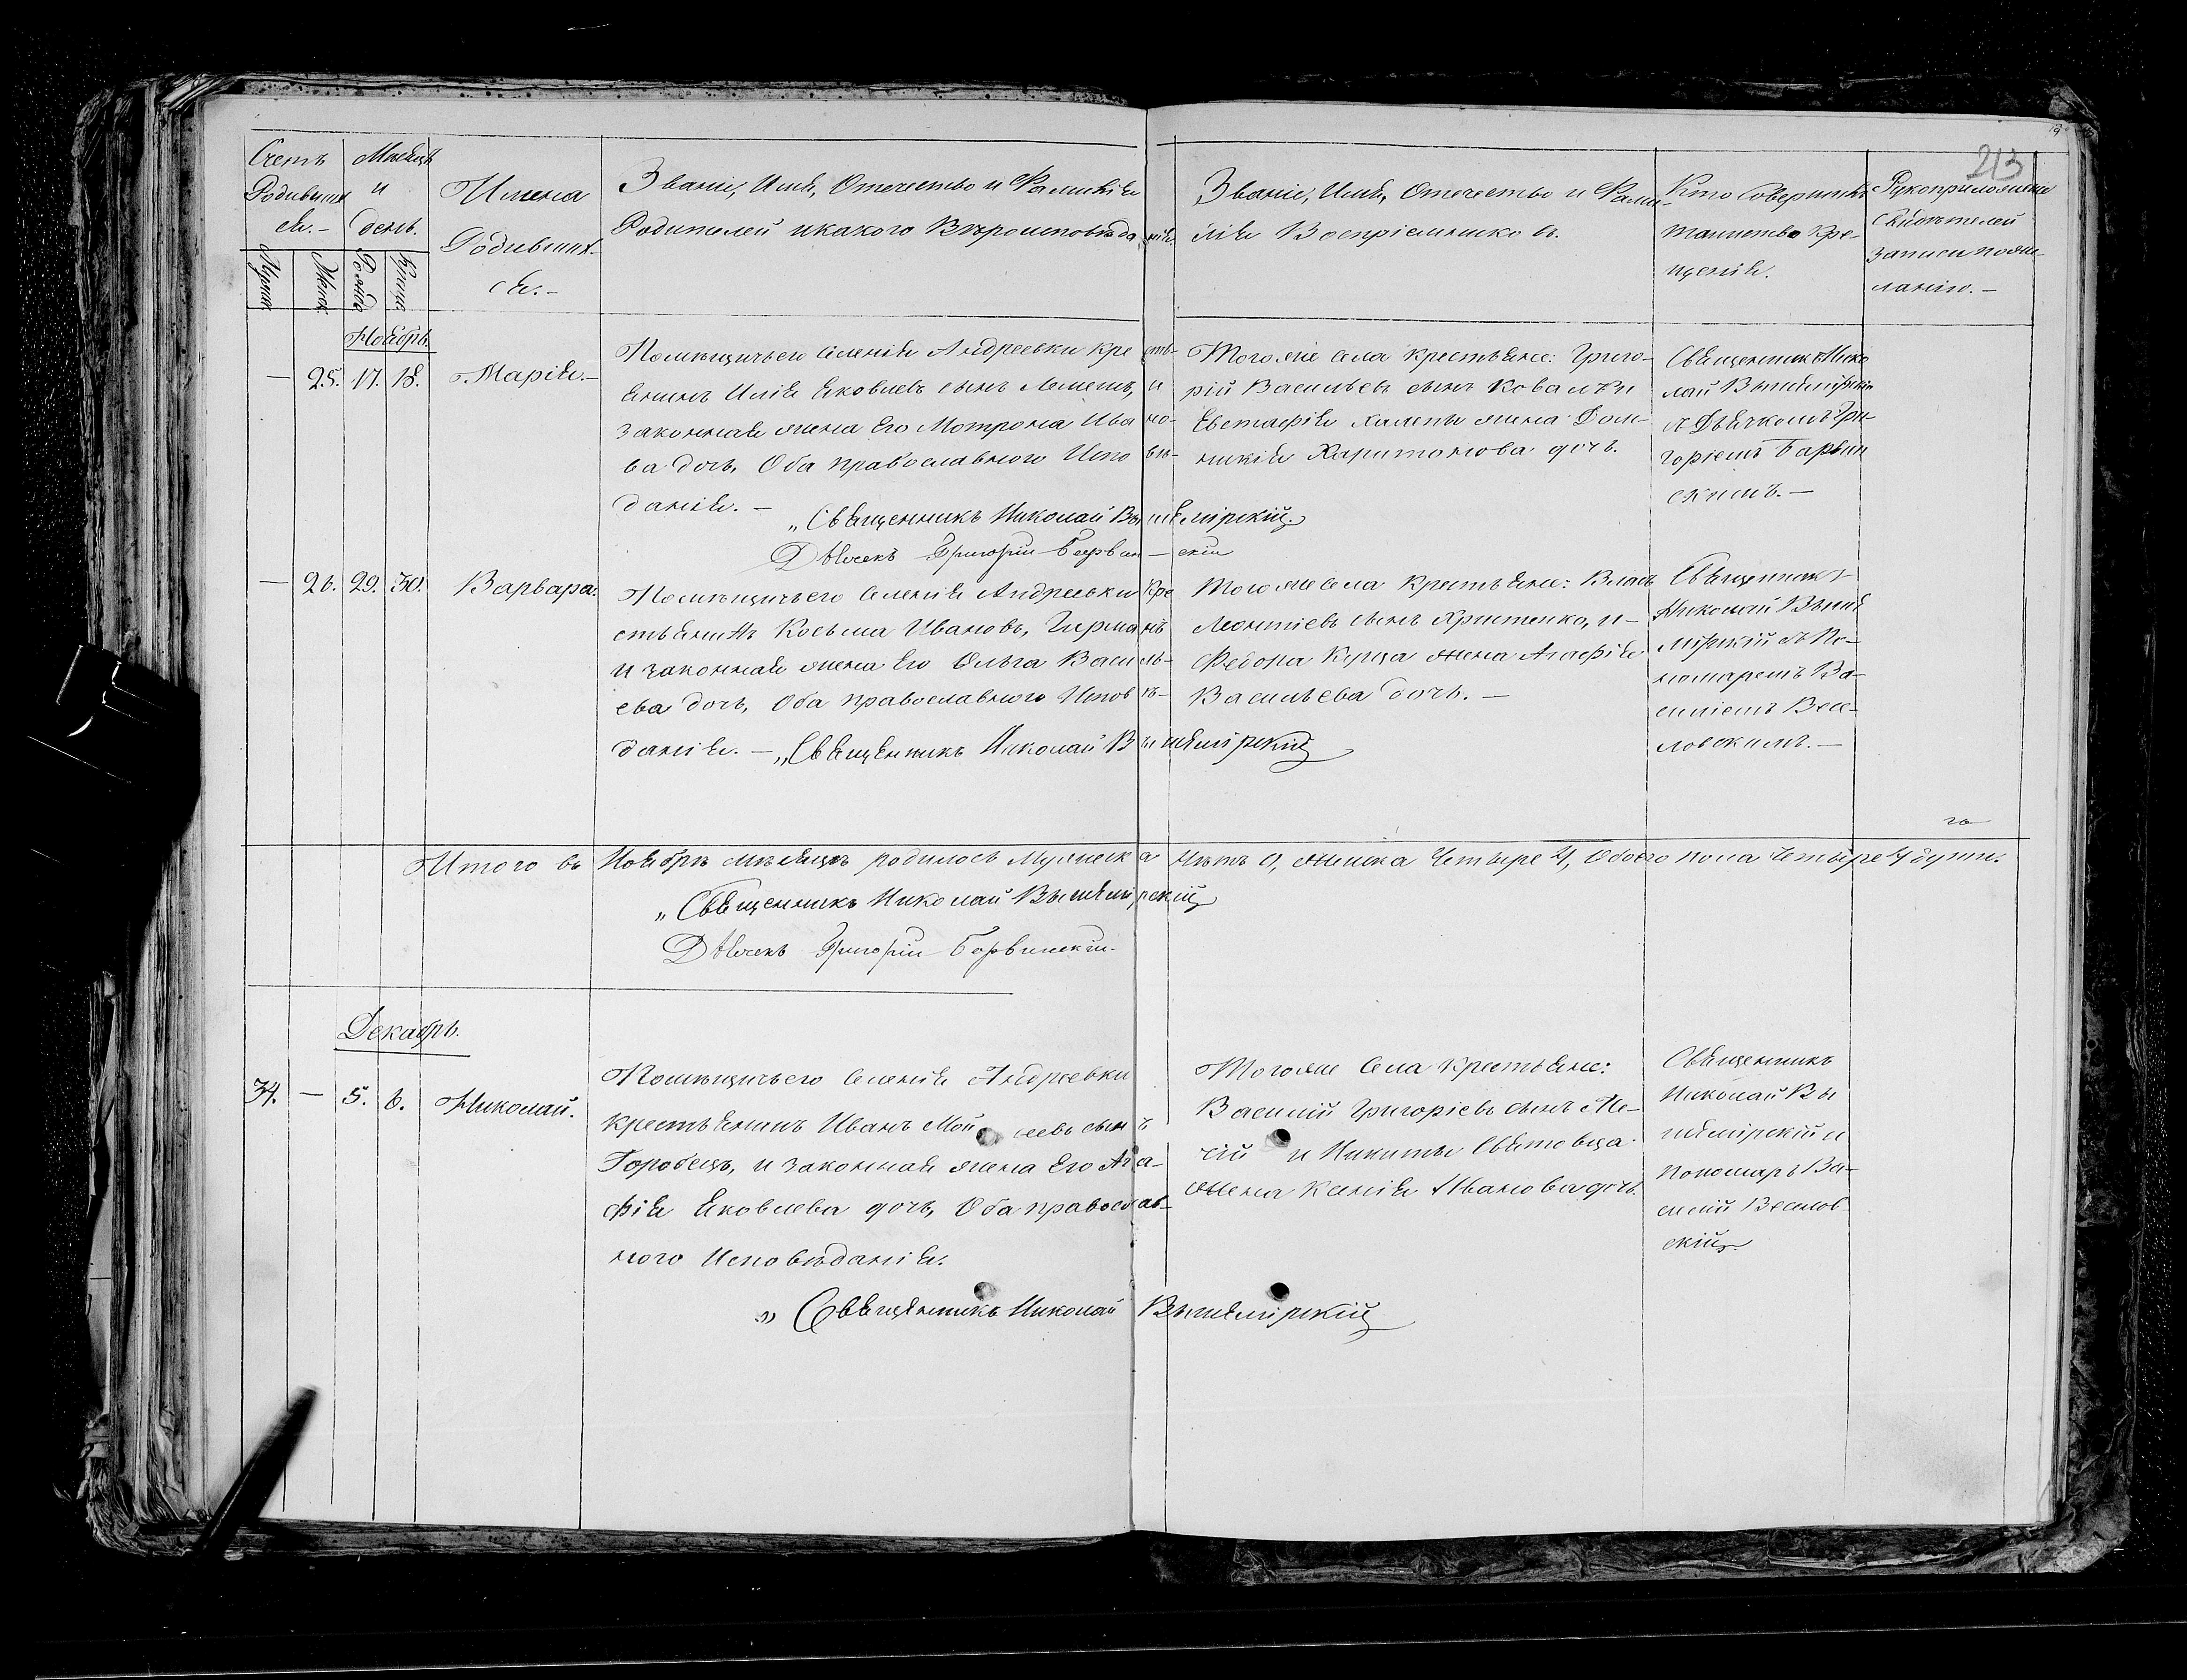 213
Счетъ
Родивших
ся.-
Мужеск
Женск
Мѣсяцъ
и
день.
Рожде
Креще
Имена
Родивших-
ся.-
Званіе, Имя, Отечество и Фамилія
Родителей и какого Вѣроисповѣданія.
Званіе, Имя, Отечество и Фами-
лія Воспріемниковъ.
Кто Совершилъ
таинство Кре-
щенія.
Рукоприложеніе
Свидѣтелей
Записи по же-
ланію.-
Ноябрь.
— 25. 17. 18. Марія.-
Помѣщичьего Селенія Андреевки кресть-
янинъ Илія Яковлевъ сынъ и
законная жена Его Мотрона Ивано-
ва дочь, Оба православного Исповѣ-
данія.-
„Священникъ Николай Вышемірскій
Дьячекъ Григорій Барвинскій
Тогоже села крестьяне: Григо-
рій Васильевъ сынъ Коваль и
Евстафія жена Дом-
никія Харитонова дочь.
Священникъ Нико
лай Вышемірскій
съ Дьячкомъ Гри-
горіемъ Барвин
скимъ.-
— 26. 29. 30. Варвара.
Помѣщичьего Селенія Андреевки Кре
стьянинъ Косьма Ивановъ,
и законная жена Его Ольга Василь-
ева дочь, Оба православного Исповѣ-
данія.- „Священникъ Николай Вышемірскій
Тогоже села крестьяне: Власъ
Леонтіевъ сынъ Христенко, и-
Федора жена Агафія
Васильева дочь.-
Священникъ
Николай Выше
мірскій съ По-
номаремъ Ва-
силіемъ Весе-
ловскимъ.-
Итого въ Ноябрѣ мѣсяцѣ родилось Мужеска нѣтъ 0, женска Четыре 4, Обоего пола Четыре 4 душъ.
„Священникъ Николай Вышемірскій
Дьячекъ Григорій Барвинскій.
Декабрь.
34. — 5. 6. Николай.
Помѣщичьего Селенія Андреевки
крестьянинъ Иванъ Мойсеевъ сынъ
Горобецъ, и законная жена Его Ага-
фія Яковлева дочь, Оба православ-
ного Исповѣданія.
„Священникъ Николай Вышемірскій
Тогоже Села крестьяне:
Василій Григорієвъ сынъ
и Никиты
жена Ксенія Иванова дочь.
Священникъ
Николай Вы
шемірскій и
Пономарь Ва-
силій Веселов
скій.